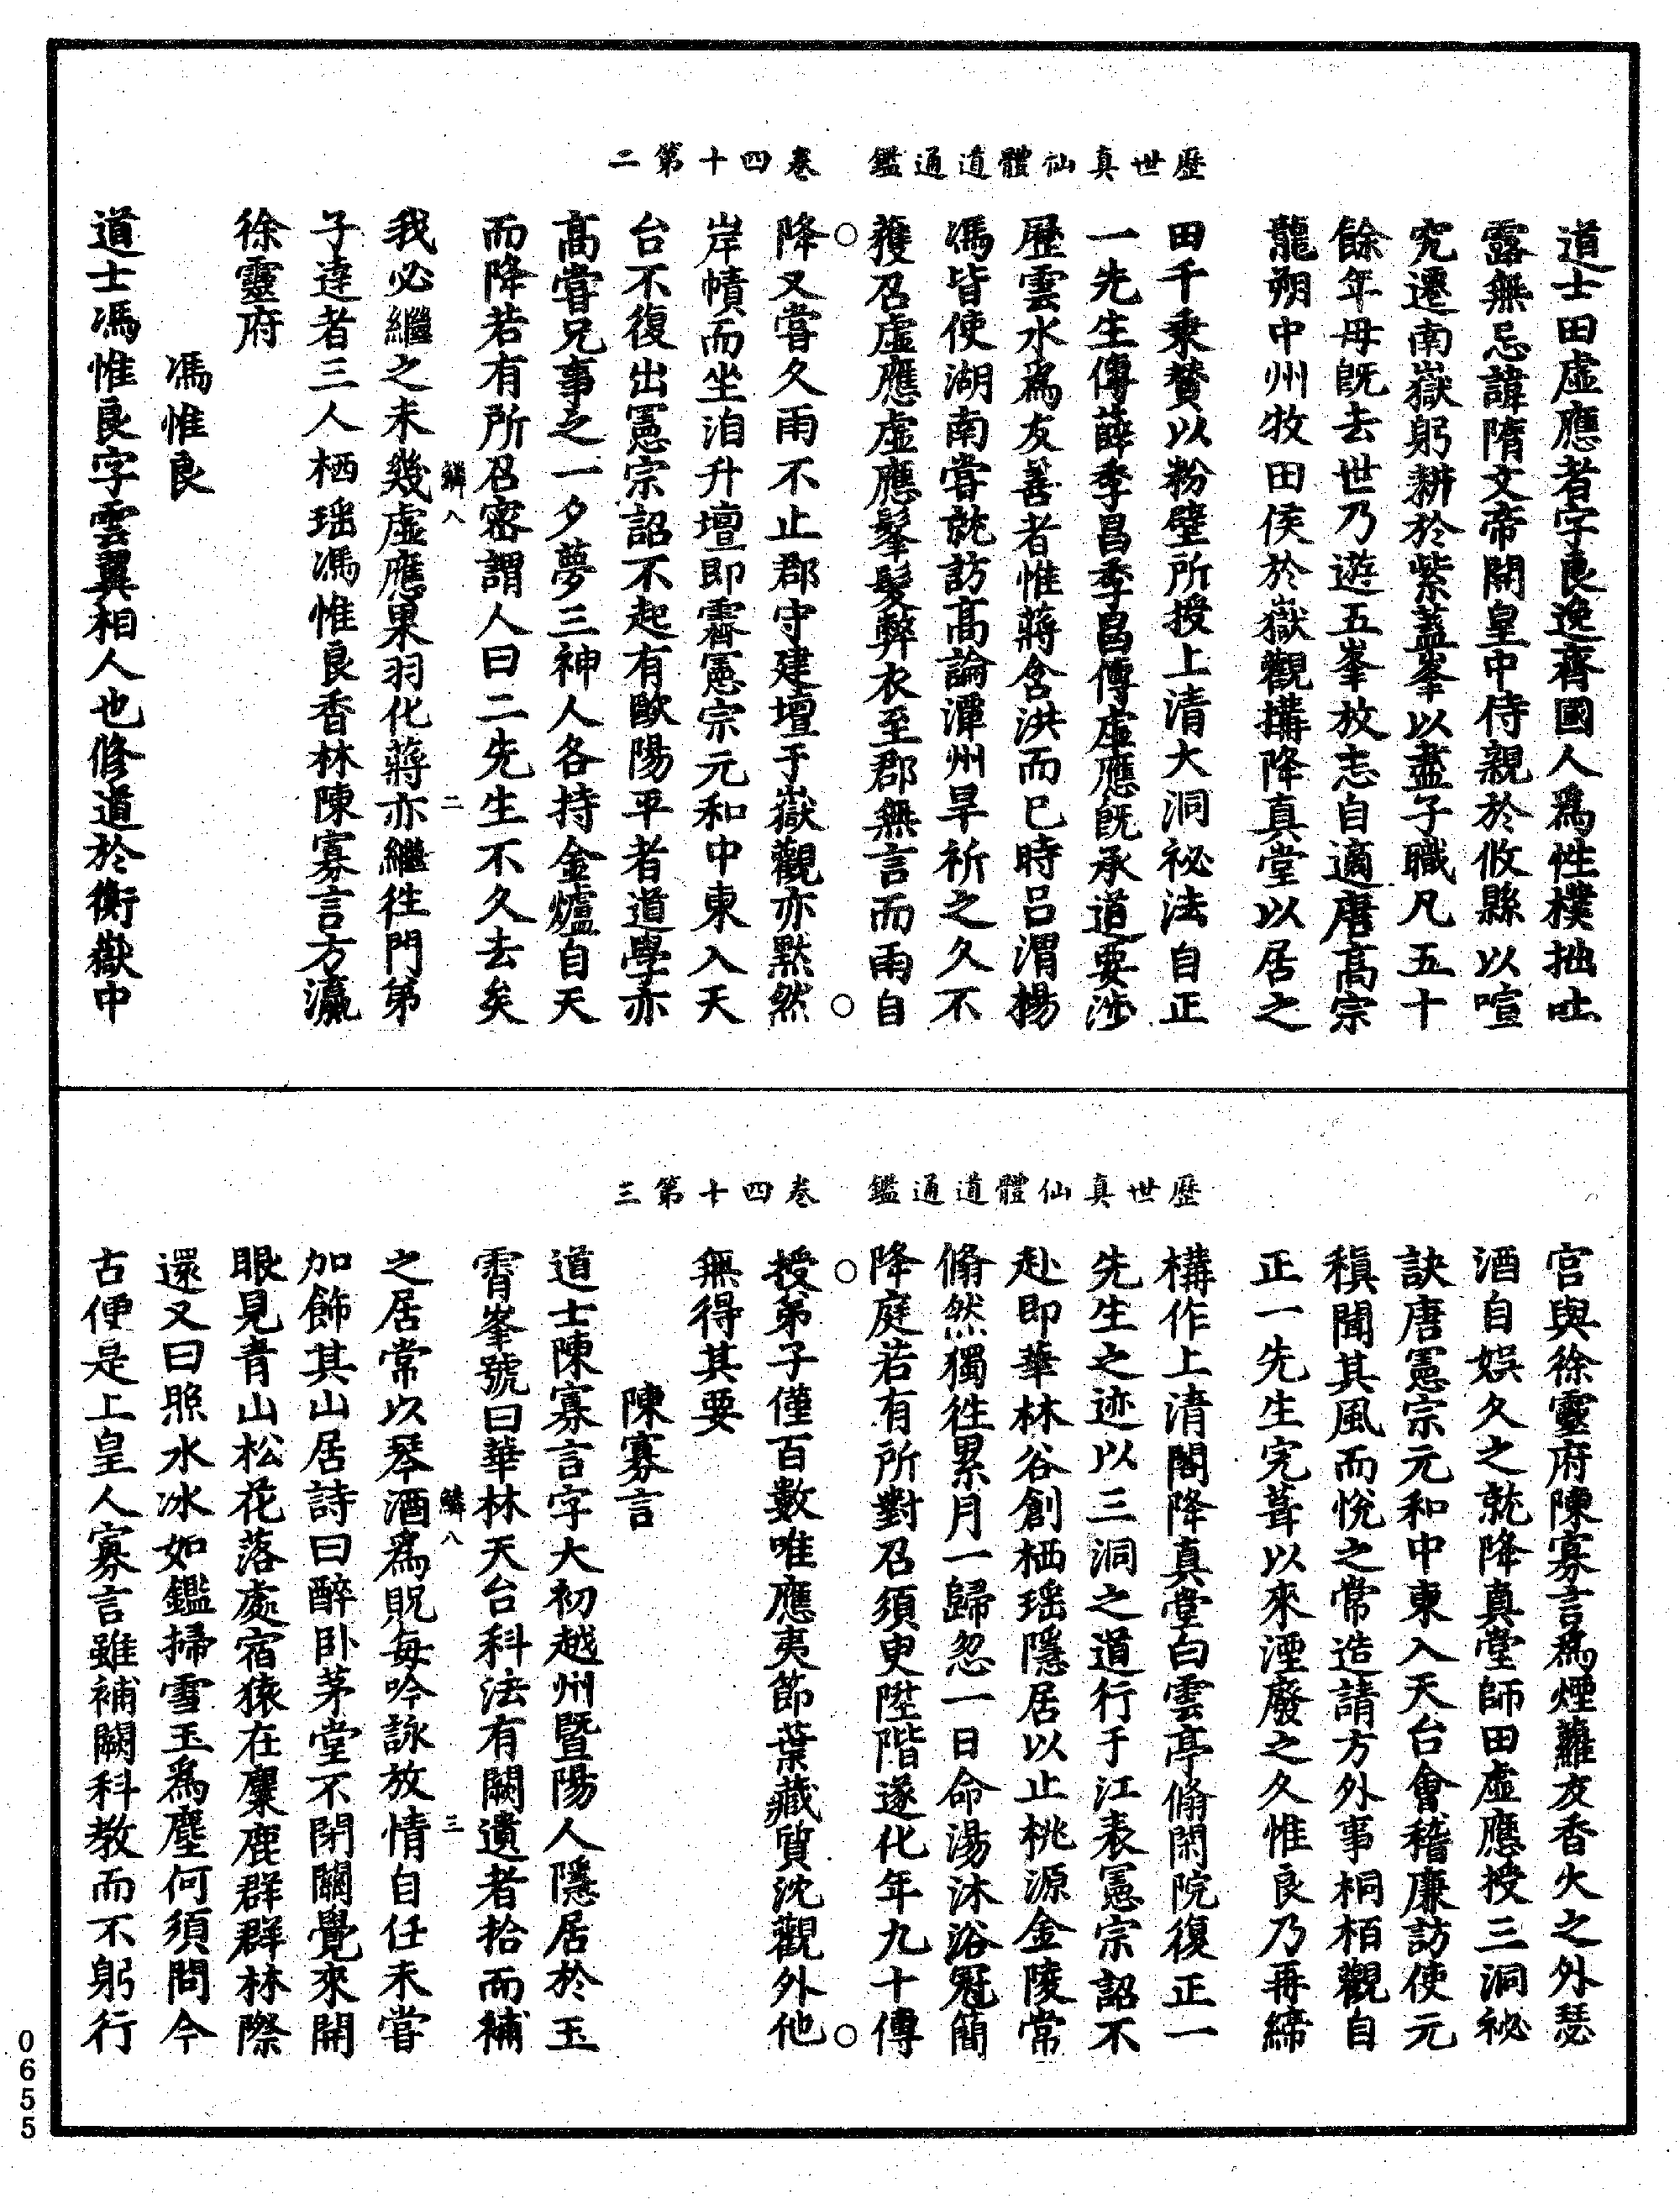 歷世真仙體道通鑑　卷四十第二
道士田虛應者字良逸齊國人為性樸拙吐
露無忌諱隋文帝開皇中侍親於攸縣以喧
究遷南嶽躬耕於紫蓋峯以盡子職凡五十
餘年母既去世乃遊五峯放志自適唐高宗
龍朔中州牧田侯於嶽觀構降真堂以居之
田千乘贊以粉壁所授上清大洞祕法自正
一先生傳薛季昌季昌傳虛應既承道要涉
歷雲水為友善者惟蔣含洪而已時呂渭楊
馮皆使湖南嘗就訪高論潭州旱祈之久不
獲召虛應虛應髼髮弊衣至郡無言而雨自
降又嘗久雨不止郡守建壇于嶽觀亦默然
岸幘而坐洎升壇即霽憲宗元和中東入天
台不復出憲宗詔不起有歐陽平者道學亦
高嘗兄事之一夕夢三神人各持金爐自天
而降若有所召密謂人曰二先生不久去矣
我必繼之未幾虛應果羽化蔣亦繼往門弟
鱗八　二
子達者三人栖瑶馮惟良香林陳寡言方瀛
徐靈府
馮惟良
道士馮惟良字雲翼相人也修道於衡嶽中
歷世真仙體道通鑑　卷四十第三
宮與徐靈府陳寡言為煙蘿友香火之外瑟
酒自娛久之就降真堂師田虛應授三洞祕
訣唐憲宗元和中東入天台會稽廉訪使元
稹聞其風而悅之常造請方外事桐栢觀自
正一先生完葺以來湮廢之久惟良乃再締
構作上清閣降真堂白雲亭翛閑院復正一
先生之迹以三洞之道行于江表憲宗詔不
赴即華林谷創栖瑶隱居以止桃源金陵常
翛然獨往累月一歸忽一日命湯沐浴冠簡
降庭若有所對召須臾陞階遂化年九十傳
授弟子僅百數唯應夷節葉藏質沈觀外他
無得其要
陳寡言
道士陳寡言字大初越州暨陽人隱居於玉
霄峯號曰華林天台科法有闕遺者拾而補
之居常以琴酒為貺每吟詠放情自任未嘗
鱗八　三
加飾其山居詩曰醉卧茅堂不閉關覺來開
眼見青山松花落處宿猿在麋鹿群群林際
還又曰照水冰如鑑掃雪玉為塵何須問今
古便是上皇人寡言雖補闕科教而不躬行
0655